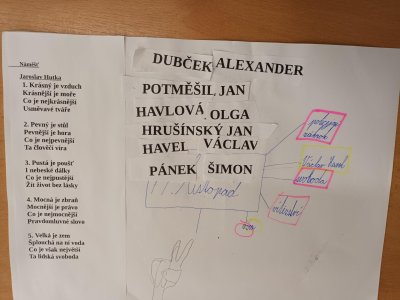 Náměšť
Jaroslav Hutka
1. Krásný je vzduch
Krásnější je moře
Co je nejkrásnější
Usměvavé tváře
2. Pevný je stůl
Pevnější je hora
Co je nejpevnější
Ta člověčí víra
3. Pustá je poušť
I nebeské dálky
Co je nejpustější
Žít život bez lásky
4. Mocná je zbraň
Mocnější je právo
Co je nejmocnější
Pravdomluvné slovo
5. Velká je zem
Šplouchá na ní voda
Co je však největší
Ta lidská svoboda
DUBČEK ALEXANDER
POTMĚŠIL JAN
HAVLOVÁ OLGA
HRUŠÍNSKÝ JAN
HAVEL VÁCLAV
PÁNEK ŠIMON
17. listopad
Václav Havel
svoboda
vítězství